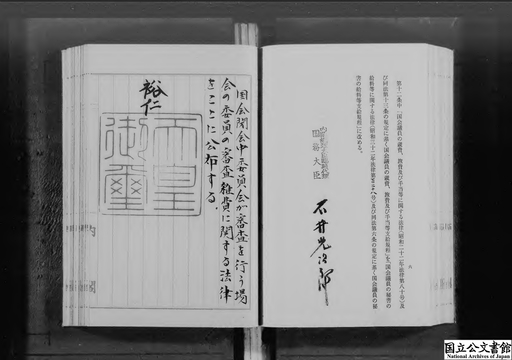 第十二条中「国会議員の歳費、旅費及び手当等に関する法律(昭和二十二年法律第八十号)及
び同法第十三条の規定に基く国会議員の歳費、旅費及び手当等支給規程」を「国会議員の秘書の
給料等に関する法律(昭和三十二年法律第百二十八号)及び同法第六条の規定に基く国会議員の秘
書の給料等支給規程」に改める。
六
国務大臣
石井光次郎
国会閉会中委員会が審査を行う場
合の委員の審査雑費に関する法律
をここに公布する。
裕仁
天皇
御璽
国立公文書館
National Archives of Japan